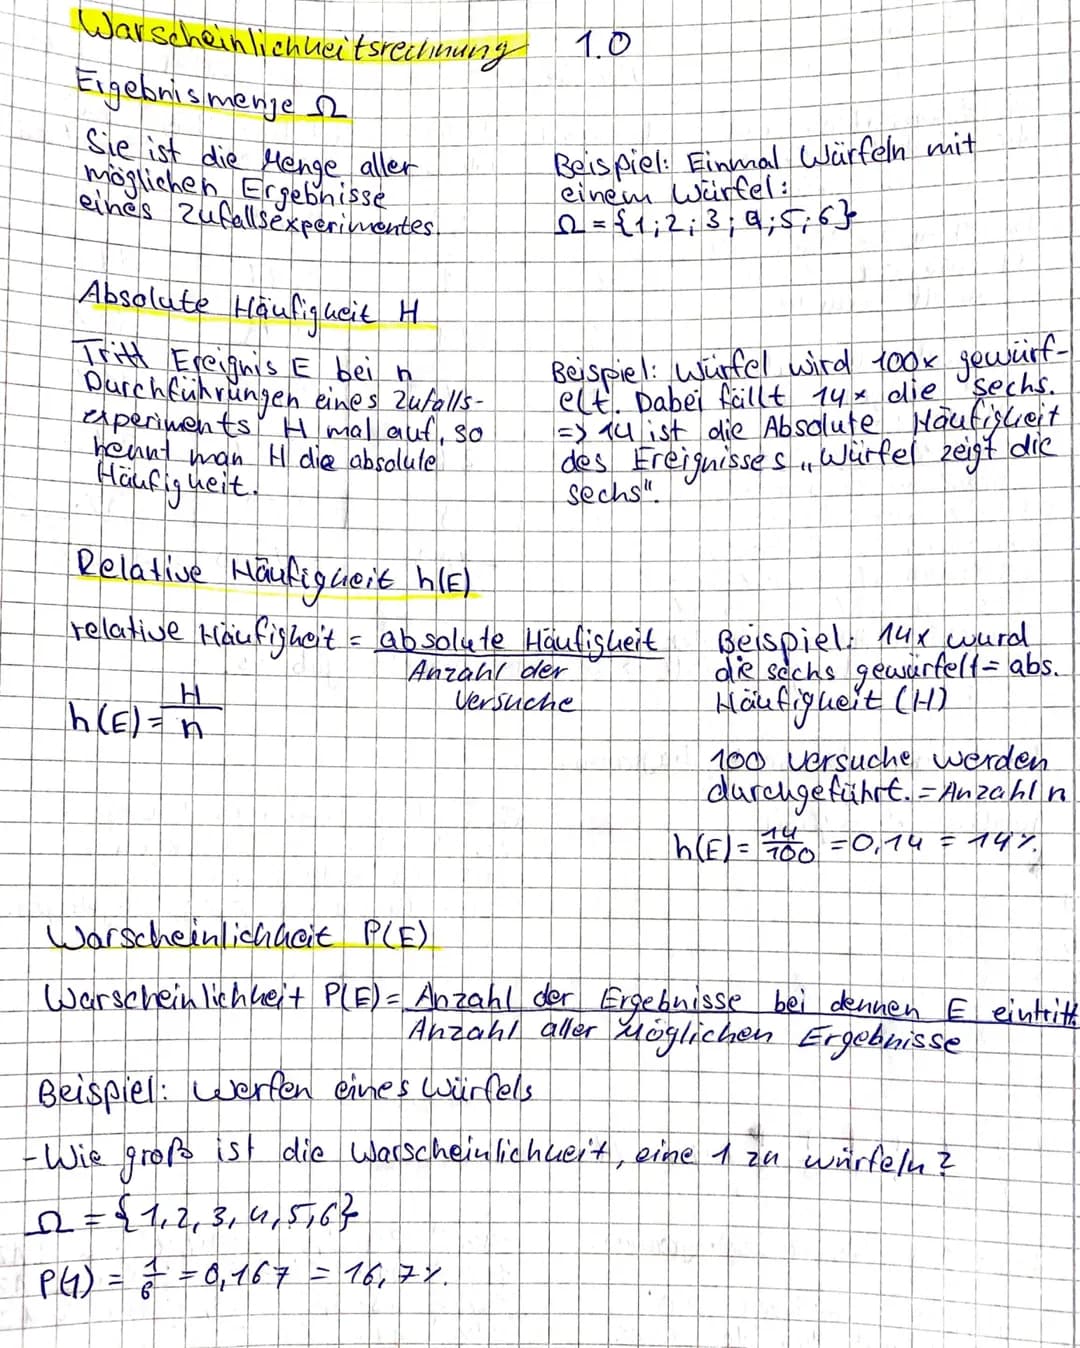 Warscheinlichkeitsrechnung 1.0
Ergebnismenge Ω
Sie ist die Menge aller
möglichen Ergebnisse
eines Zufallsexperimentes.
Beispiel: Einmal Würfeln mit
einem Würfel:
Ω = {1;2;3;4;5;6}
Absolute Häufigkeit H
Tritt Ereignis E bei n
Durchführungen eines Zufalls-
experiments H mal auf, so
nennt man H die absolute
Häufigkeit.
Beispiel: Würfel wird 100x gewürf-
elt. Dabei fällt 14x die sechs.
=> 14 ist die Absolute Häufigkeit
des Ereignisses „Würfel zeigt die
sechs".
Relative Häufigkeit h(E)
relative Häufigkeit = absolute Häufigkeit
Anzahl der
Versuche
h(E) = H/n
Beispiel: 14x wurd
die sechs gewürfelt = abs.
Häufigkeit (H)
100 Versuche werden
durchgeführt. = Anzahl n
h(E) = 14/100 = 0,14 = 14%.
Warscheinlichkeit P(E)
Warscheinlichkeit P(E) = Anzahl der Ergebnisse bei dennen E eintritt
Anzahl aller möglichen Ergebnisse
Beispiel: Werfen eines Würfels
- Wie groß ist die Warscheinlichkeit, eine 1 zu würfeln?
Ω = {1,2,3,4,5,6}
P(1) = 1/6 = 0,167 = 16,7%.